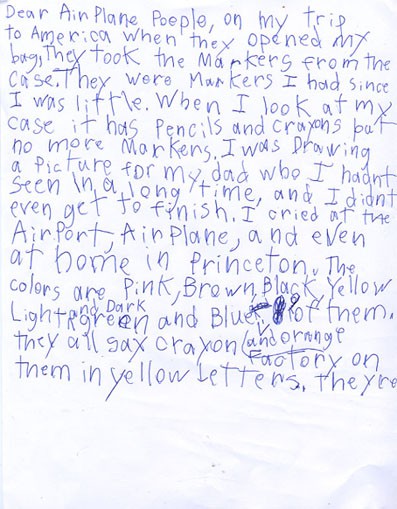 Dear AirPlane Poeple, on my trip
to America when they opened my
bag, They took the Markers from the
Case. They were Markers I had since
I was little. When I look at my
case it has Pencils and crayons but
no more Markers. I was Drawing
a Picture for my dad who I hadnt
seen in a long time, and I didnt
even get to finish. I cried at the
AirPort, AirPlane, and even
at home in Princeton. The
colors are Pink, Brown, Black, Yellow
Light and Dark green and Blue 9 of them.
they all say crayon (and orange
Factory on
them in yellow Letters. They're